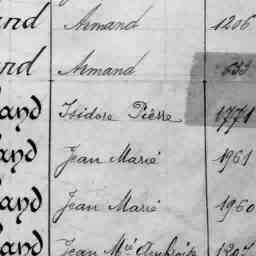 and Armand 1206
and Armand 633
and Isidore Pierre 1771
and Jean Marie 1961
and Jean Marie 1960
and Jean Mie